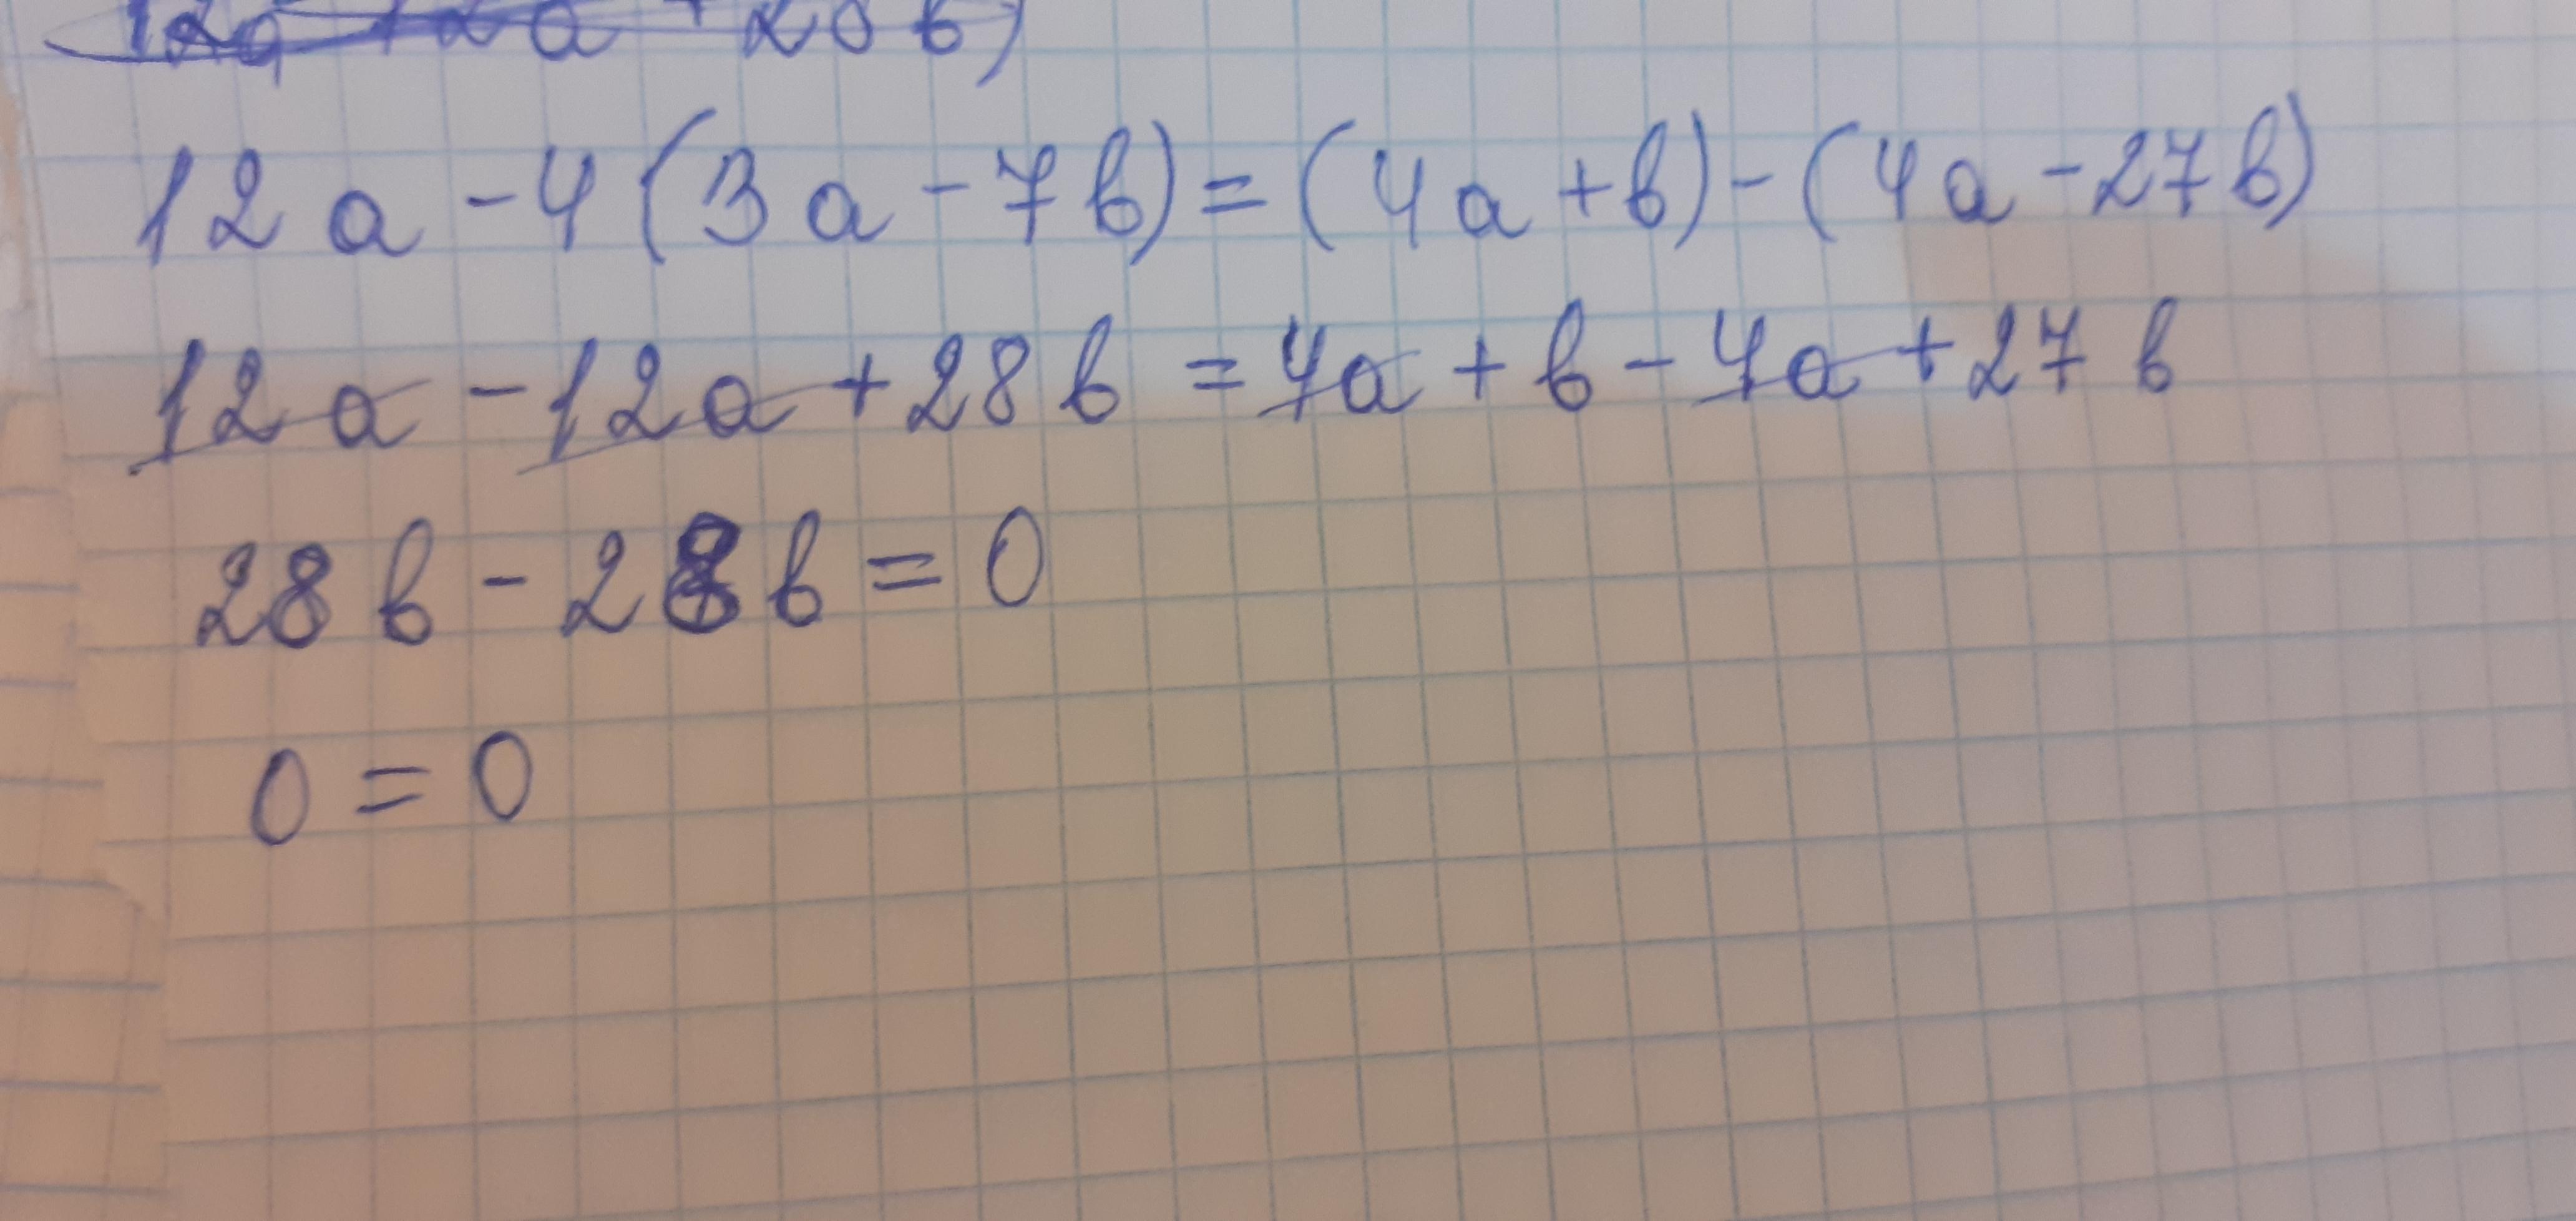 12a - 12a + 28b)
12a - 4(3a - 7b) = (4a + b) - (4a - 27b)
12a - 12a + 28b = 4a + b - 4a + 27b
28b - 28b = 0
0 = 0